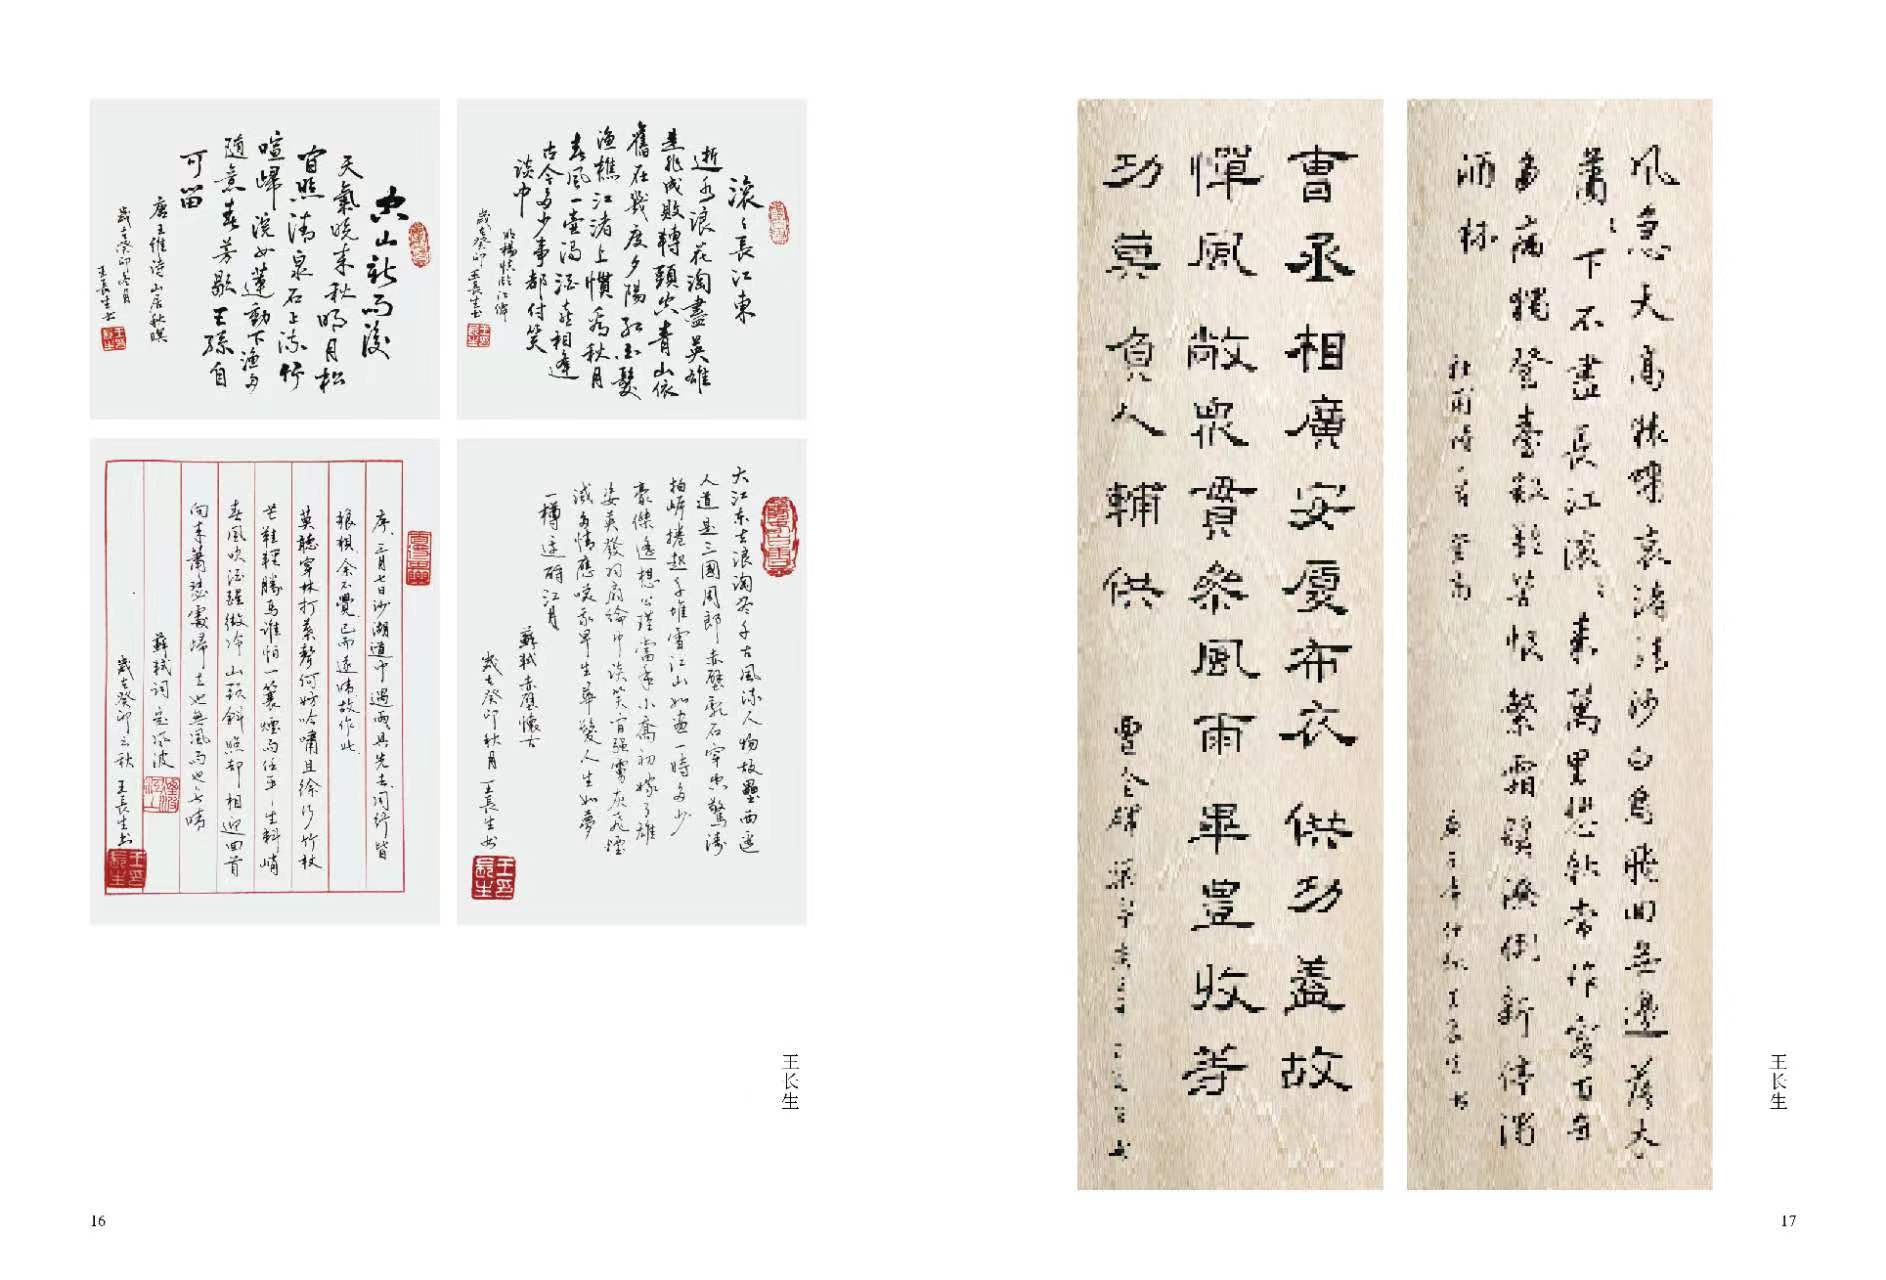 空山新雨後
天氣晚來秋明月松
間照清泉石上流竹
喧歸浣女蓮動下漁舟
隨意春芳歇王孫自
可留
唐王維詩山居秋暝
歲在癸卯冬月
王長生書
王印長生
滾〻長江東
逝水浪花淘盡英雄
是非成敗轉頭空青山依
舊在幾度夕陽紅白髮
漁樵江渚上慣看秋月
春風一壺濁酒喜相逢
古今多少事都付笑
談中
明楊慎臨江仙
歲在癸卯王長生書
王印長生
序三月七日沙湖道中遇雨具先去同行皆
狼狽余不覺已而遂晴故作此
莫聽穿林打葉聲何妨吟嘯且徐行竹杖
芒鞋輕勝馬誰怕一蓑煙雨任平生料峭
春風吹酒醒微冷山頭斜照却相迎回首
向來蕭瑟處歸去也無風雨也無晴
蘇軾詞定風波
歲在癸卯之秋王長生書
王印長生
大江東去浪淘盡千古風流人物故壘西邊
人道是三國周郎赤壁亂石穿空驚濤
拍岸捲起千堆雪江山如畫一時多少
豪傑遙想公瑾當年小喬初嫁了雄
姿英發羽扇綸巾談笑間強虜灰飛煙
滅多情應笑我早生華髮人生如夢
一樽還酹江月
蘇軾赤壁懷古
歲在癸卯秋月王長生書
王印長生
王长生
16
風急天高猿嘯哀渚清沙白鳥飛回無邊落木
蕭〻下不盡長江滾〻來萬里悲秋常作客百年
多病獨登臺艱難苦恨繁霜鬢潦倒新停濁
酒杯
杜甫詩一首登高
王長生書
曹丞相廣安廈布衣供功蓋故
憚風敞眾貫祭風雨畢豐收等
功莫負人輔供
曹全碑
王长生
17